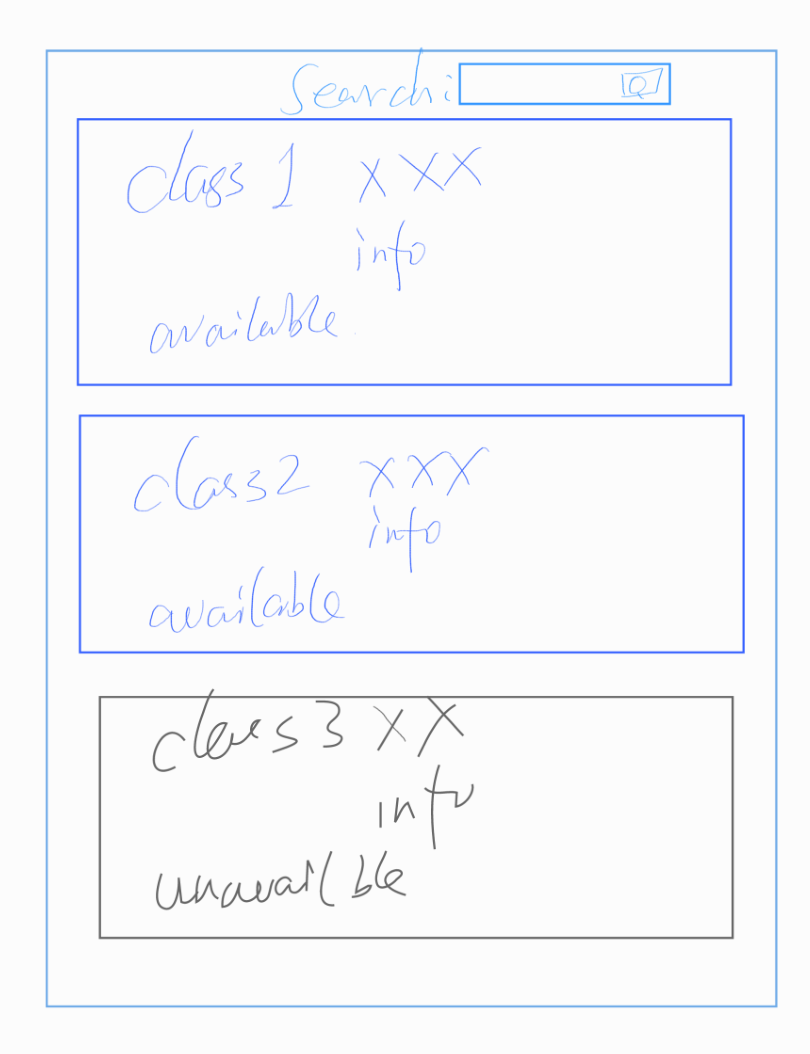 Search:
class 1 XXX
info
available
class2 XXX
info
available
class3 XX
info
unavailble